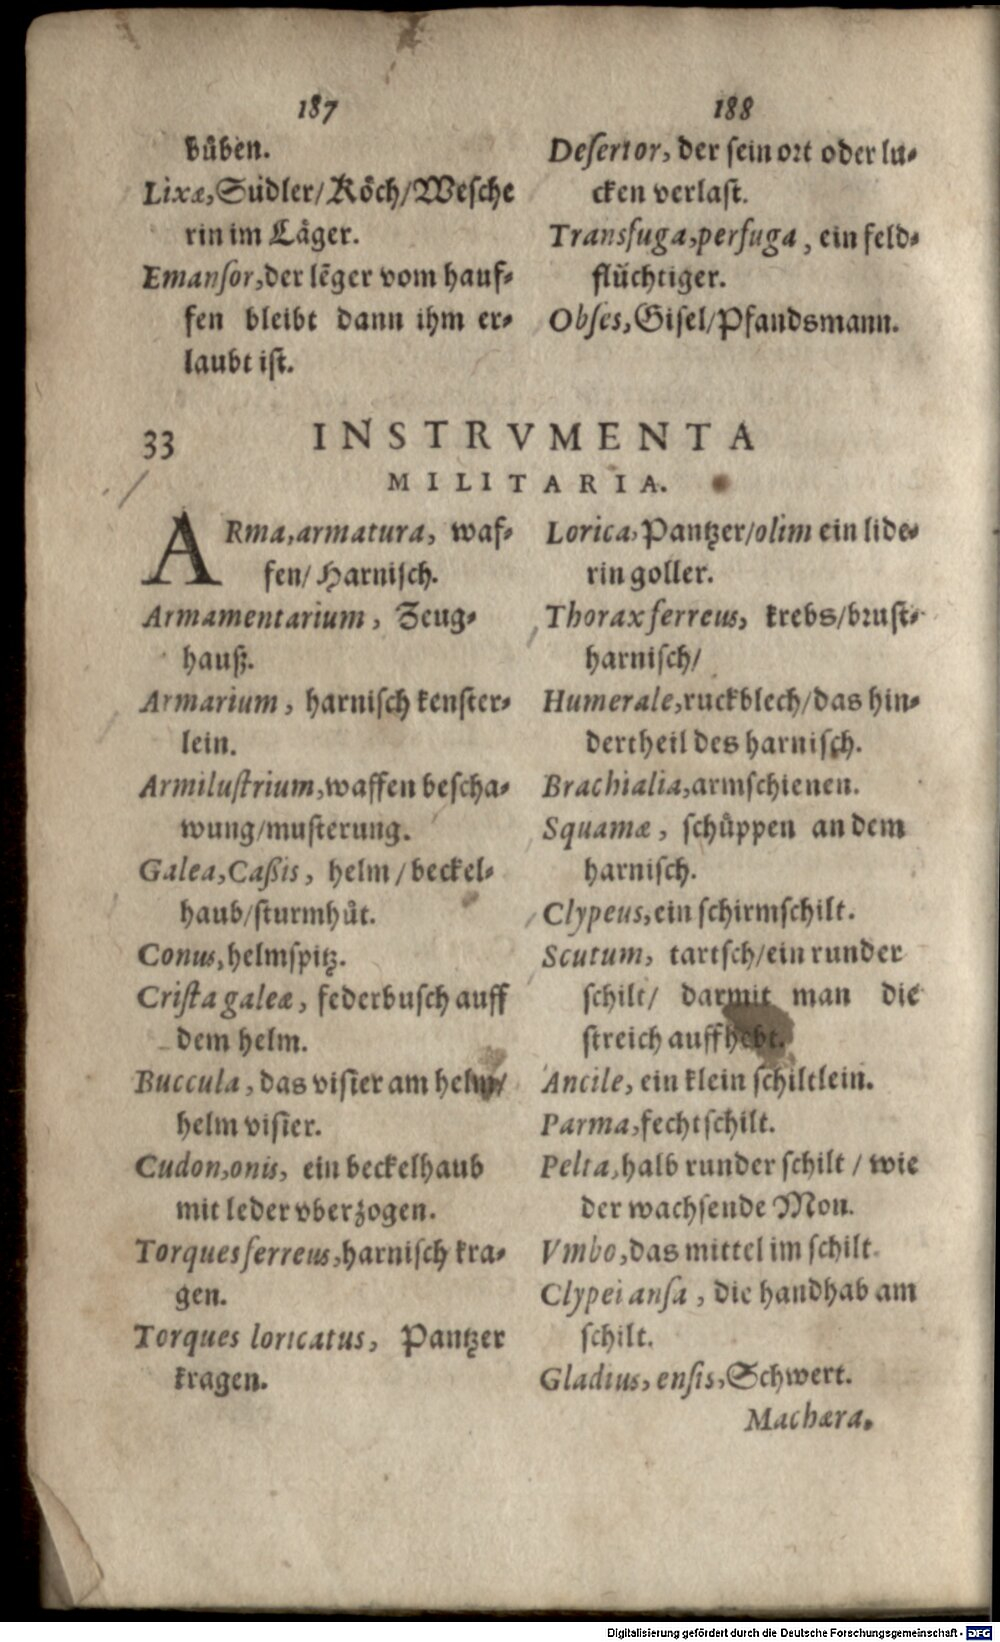 187
bůben.
Lixæ, Südler/Köch/Wesche
rin im Läger.
Emansor, der lẽger vom hauf⸗
fen bleibt dann ihm er⸗
laubt ist.
188
Desertor, der sein ort oder lu⸗
cken verlast.
Transfuga, perfuga, ein feld⸗
flüchtiger.
Obses, Gisel/Pfandsmann.
33 INSTRVMENTA
MILITARIA.
ARma, armatura, waf⸗
fen/ Harnisch.
Armamentarium, Zeug⸗
hauß.
Armarium, harnisch kenster⸗
lein.
Armilustrium, waffen bescha⸗
wung/musterung.
Galea, Caßis, helm/beckel⸗
haub/sturmhůt.
Conus, helmspitz.
Crista galeæ, federbusch auff
dem helm.
Buccula, das visier am helm/
helm visier.
Cudon, onis, ein beckelhaub
mit leder vberzogen.
Torques ferreus, harnisch kra⸗
gen.
Torques loricatus, Pantzer
kragen.
Lorica, Pantzer/olim ein lide⸗
rin goller.
Thorax ferreus, krebs/brust⸗
harnisch/
Humerale, ruckblech/das hin⸗
dertheil des harnisch.
Brachialia, armschienen.
Squamæ, schůppen an dem
harnisch.
Clypeus, ein schirmschilt.
Scutum, tartsch/ein runder
schilt/ darmit man die
streich auffhebt.
Ancile, ein klein schiltlein.
Parma, fechtschilt.
Pelta, halb runder schilt/wie
der wachsende Mon.
Vmbo, das mittel im schilt.
Clypei ansa, die handhab am
schilt.
Gladius, ensis, Schwert.
Machæra,
Digitalisierung gefördert durch die Deutsche Forschungsgemeinschaft - DFG